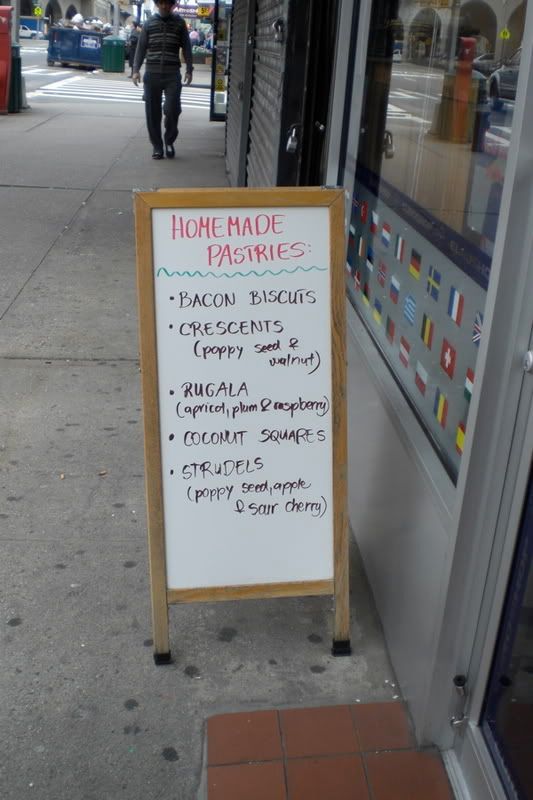 HOMEMADE
PASTRIES:
• BACON BISCUTS
• CRESCENTS
(poppy seed &
walnut)
• RUGALA
(apricot, plum & raspberry)
• COCONUT SQUARES
• STRUDELS
(poppy seed, apple
& sour cherry)